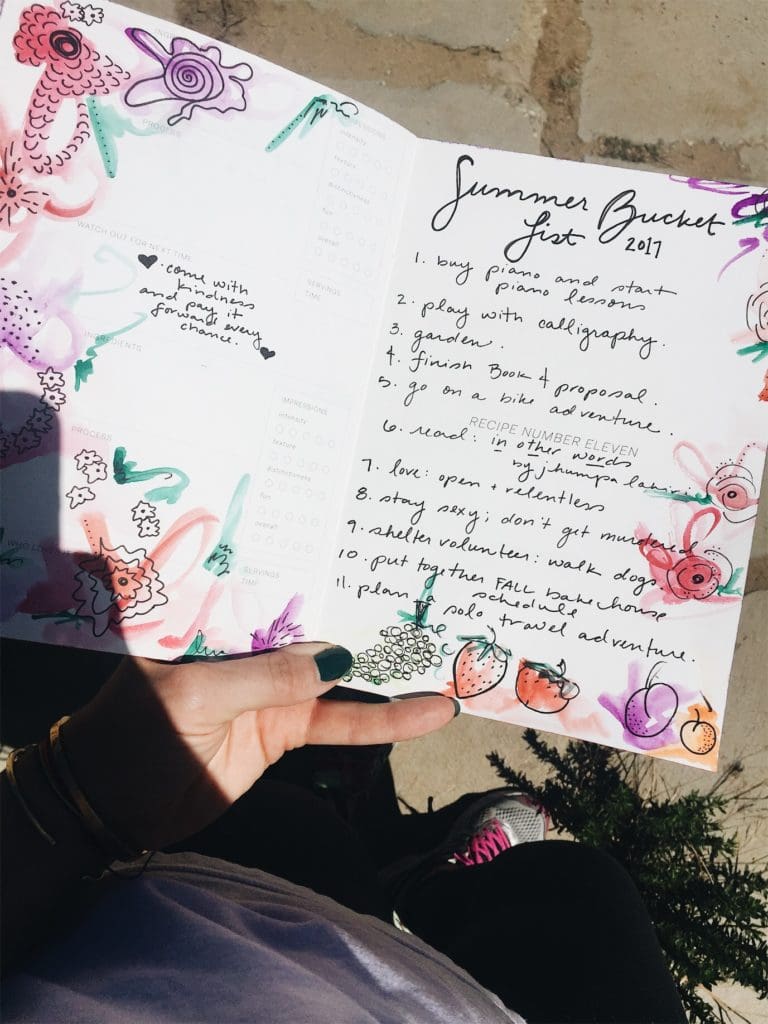 PROCESS
intensity
texture
distinctiveness
fun
overall
WATCH OUT FOR NEXT TIME
SERVINGS
TIME
come with
kindness
and pay it
forward every
chance.
INGREDIENTS
IMPRESSIONS
intensity
texture
distinctiveness
fun
overall
PROCESS
SERVINGS
TIME
Summer Bucket
List 2017
1. buy piano and start
piano lessons
2. play with calligraphy.
3. garden.
4. finish Book + proposal.
5. go on a bike adventure.
RECIPE NUMBER ELEVEN
6. read: in other words
by jhumpa lahiri
7. love: open + relentless
8. stay sexy; don't get murdered
9. shelter volunteer: walk dogs
10. put together FALL bakehouse
schedule
11. plan a
solo travel adventure.